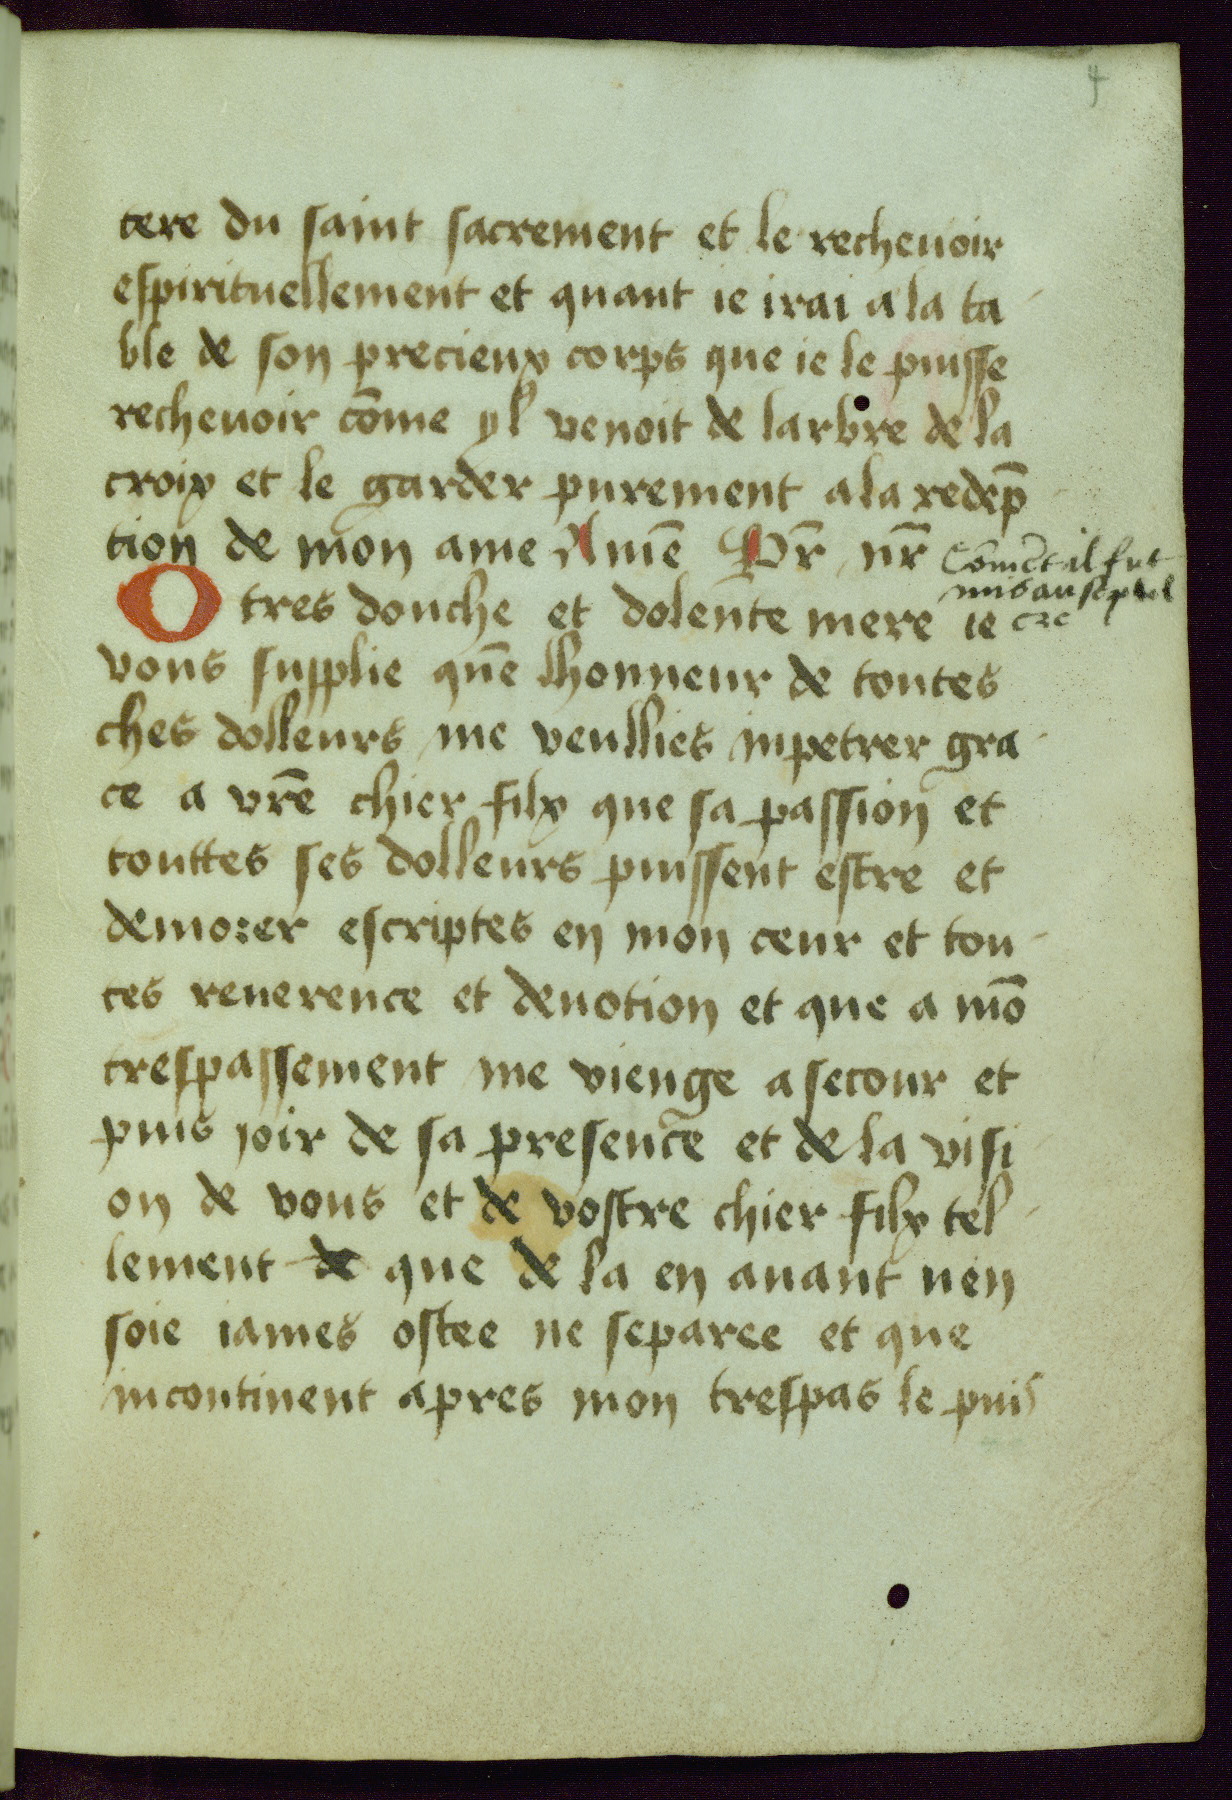 4
tere du saint sacrement et le rechevoir
espirituellement et quant ie irai a la ta-
ble de son precieux corps que ie le puisse
rechevoir cōme yl venoit de larbre de la
croix et le garder purement a la redēp
tion de mon ame Amē Pr̄ nr̄
Comēt il fut
mis au sepul
cre
O tres douche et dolente mere ie
vous supplie quē lhonneur de toutes
ches dolleurs me veullies inpetrer gra-
ce a vrē chier filx que sa passion et
touttes ses dolleurs puissent estre et
demorer escriptes en mon ceur et tou-
tes reuerence et deuotion et que a mō
trespassement me vienge a secour et
puis ioir de sa presence et de la visi-
on de vous et de vostre chier filx tel-
lement de que de la en auant nen
soie iames ostee ne separee et que
incontinent apres mon trespas le puis